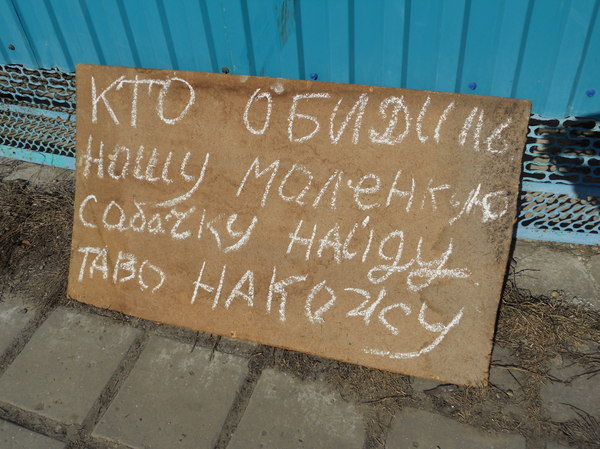 КТО ОБИДИЛ
НАШУ МАЛЕНКУЮ
СОБАЧКУ НАЙДУ
ТАВО НАКАЖУ